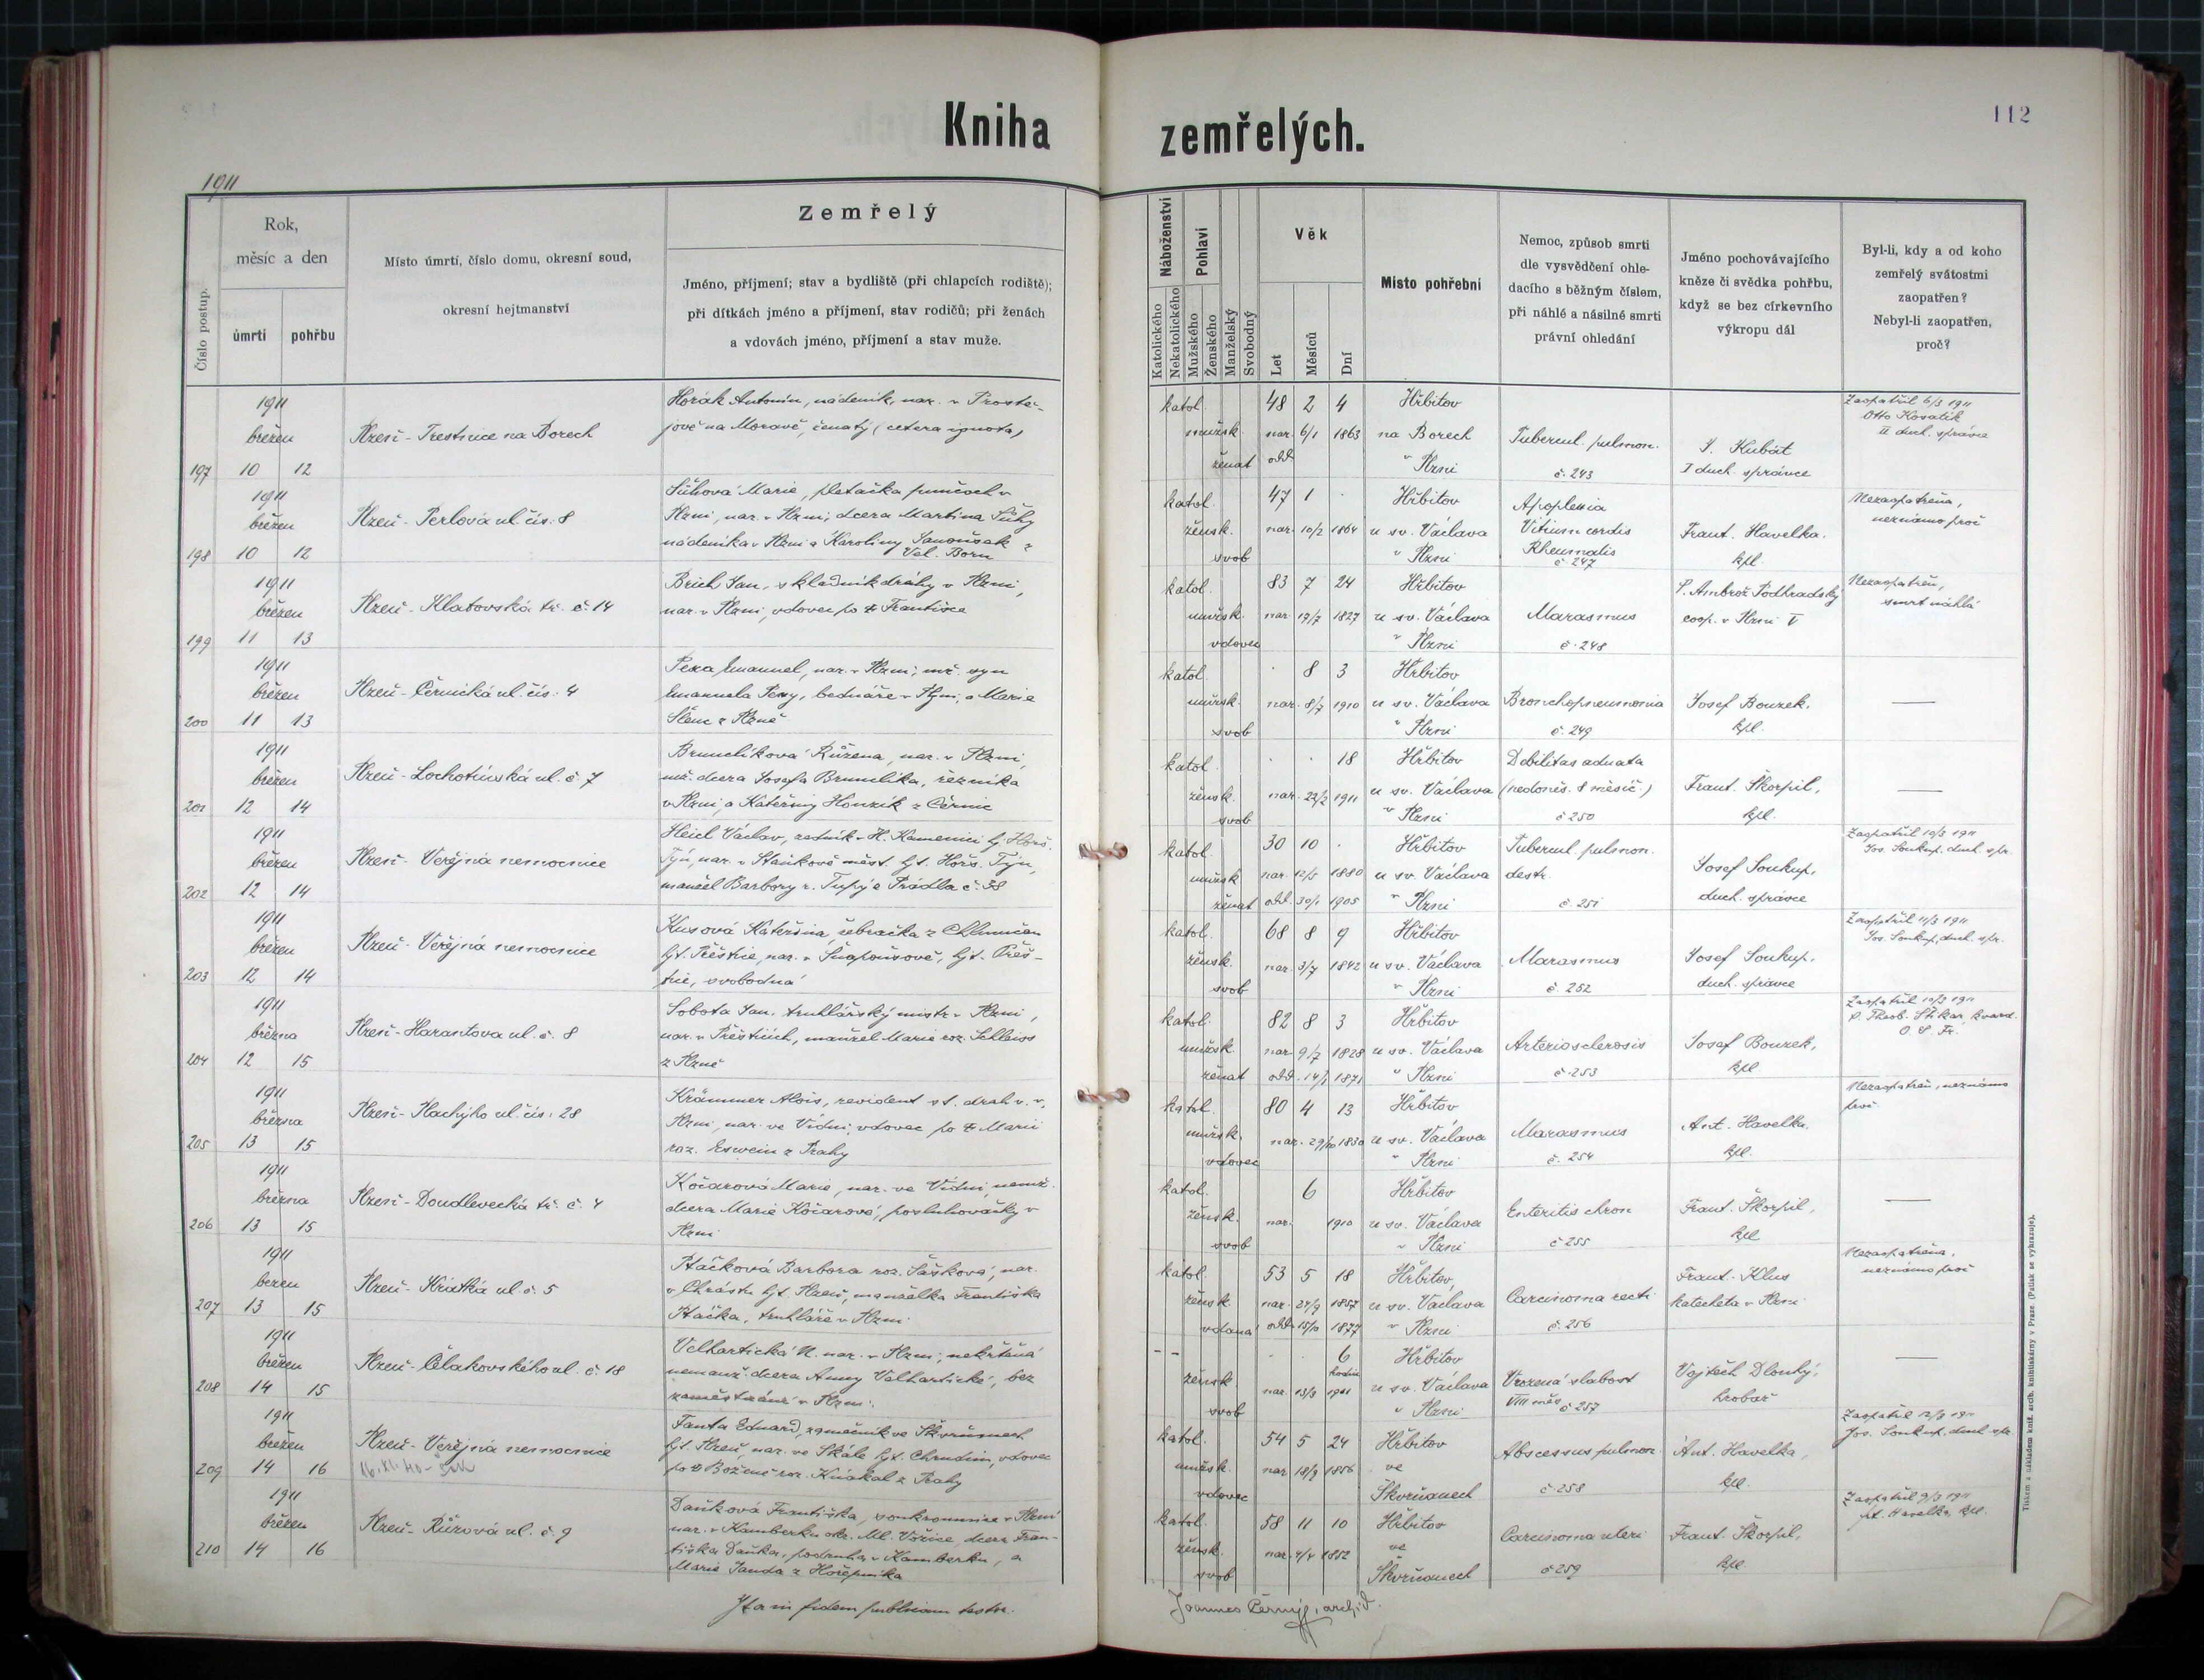 Kniha zemřelých.
112
1911
Číslo postup.
Rok,
měsíc a den
úmrtí
pohřbu
Místo úmrtí, číslo domu, okresní soud,
okresní hejtmanství
Zemřelý
Jméno, příjmení; stav a bydliště (při chlapcích rodiště);
při dítkách jméno a příjmení, stav rodičů; při ženách
a vdovách jméno, příjmení a stav muže.
Náboženství
Katolického
Nekatolického
Pohlaví
Mužského
Ženského
Manželský
Svobodný
Věk
Let
Měsíců
Dní
Místo pohřební
Nemoc, způsob smrti
dle vysvědčení ohle-
dacího s běžným číslem,
při náhlé a násilné smrti
právní ohledání
Jméno pochovávajícího
kněze či svědka pohřbu,
když se bez církevního
výkropu dál
Byl-li, kdy a od koho
zemřelý svátostmi
zaopatřen?
Nebyl-li zaopatřen,
proč?
1911
březen
197 10 12
Plzeň - Trestnice na Borech
Horák Antonín, nádeník, nar. v Prostě-
jově na Moravě, ženatý (cetera ignota)
katol. 48 2 4
mužsk. nar. 6/1 1863
ženat odd.
Hřbitov
na Borech
v Plzni
Tubercul. pulmon.
č. 243
J. Kubát
I duch. správce
Zaopatřil 6/3 1911
Otto Kosatík
II duch. správce
1911
březen
198 10 12
Plzeň - Perlová ul. čís. 8
Šůhová Marie, pletačka punčoch v
Plzni, nar. v Plzni, dcera Martina Šůhy
nádeníka v Plzni a Karoliny Janoušek z
Vel. Boru
katol. 47 1 .
žensk. nar. 10/2 1864
svob
Hřbitov
u sv. Václava
v Plzni
Apoplexia
Vitium cordis
Rheumatis
č. 247
Frant. Havelka.
kpl.
Nezaopatřena,
neznámo proč
1911
březen
199 11 13
Plzeň - Klatovská tř. č. 14
Brich Jan, skladník dráhy v Plzni,
nar. v Plzni, vdovec po † Františce
katol. 83 7 24
mužsk. nar. 17/7 1827
vdovec
Hřbitov
u sv. Václava
v Plzni
Marasmus
č. 248
P. Ambrož Podhradský
coop. v Plzni V
Nezaopatřen,
smrt náhlá
1911
březen
200 11 13
Plzeň - Černická ul. čís. 4
Pexa Emanuel, nar. v Plzni; mž. syn
Emanuela Pexy, bednáře v Plzni, a Marie
Šlenc z Plzně
katol. . 8 3
mužsk. nar. 8/7 1910
svob
Hřbitov
u sv. Václava
v Plzni
Bronchopneumonia
č. 249
Josef Bouzek.
kpl.
—
1911
březen
201 12 14
Plzeň - Lochotínská ul. č. 7
Brunclíková Růžena, nar. v Plzni,
mž. dcera Josefa Brunclíka, řezníka
v Plzni, a Kateřiny Honzík z Černic
katol. . . 18
žensk. nar. 22/2 1911
svob
Hřbitov
u sv. Václava
v Plzni
Debilitas adnata
(nedonoš. 8 měsíč.)
č. 250
Frant. Škorpil,
kpl.
—
1911
březen
202 12 14
Plzeň - Veřejná nemocnice
Heicl Václav, zedník v H. Kamenici hj. Horš.
Týn, nar. v Staňkově měst. hjt. Horš. Týn,
manžel Barbory r. Tupý z Prádla č. 38
katol. 30 10 .
mužsk. nar. 12/5 1880
ženat odd. 30/1 1905
Hřbitov
u sv. Václava
v Plzni
Tubercul. pulmon.
destr.
č. 251
Josef Soukup.
duch. správce
Zaopatřil 10/3 1911
Jos. Soukup. duch. spr.
1911
březen
203 12 14
Plzeň - Veřejná nemocnice
Kusová Kateřina, žebračka z Chlumčan
hjt. Přeštice, nar. v Šnopoušově, hjt. Přeš-
tice, svobodná
katol. 68 8 9
žensk. nar. 3/7 1842
svob
Hřbitov
u sv. Václava
v Plzni
Marasmus
č. 252
Josef Soukup.
duch. správce
Zaopatřil 11/3 1911
Jos. Soukup, duch. spr.
1911
března
204 12 15
Plzeň - Harantova ul. č. 8
Sobota Jan, truhlářský mistr v Plzni,
nar. v Přešticích, manžel Marie roz. Schleiss
z Plzně
katol. 82 8 3
mužsk. nar. 9/7 1828
ženat odd. 14/1 1871
Hřbitov
u sv. Václava
v Plzni
Arteriosclerosis
č. 253
Josef Bouzek,
kpl
Zaopatřil 10/3 1911
P. Theob. kvard.
O. S. Fr.
1911
března
205 13 15
Plzeň - Plachýho ul. čís. 28
Krämmer Alois, revident st. drah v. v.
Plzni, nar. ve Vídni, vdovec po † Marii
roz. Eswein z Prahy
katol. 80 4 13
mužsk. nar. 29/10 1830
vdovec
Hřbitov
u sv. Václava
v Plzni
Marasmus
č. 254
Ant. Havelka.
kpl.
Nezaopatřen, neznámo
proč
1911
března
206 13 15
Plzeň - Doudlevecká tř. č. 4
Kočarová Marie, nar. ve Vídni, nemž.
dcera Marie Kočarové, posluhovačky v
Plzni
katol. 6
žensk. nar. 1910
svob
Hřbitov
u sv. Václava
v Plzni
Enteritis chron
č 255
Frant. Škorpil,
kpl
—
1911
bezen
207 13 15
Plzeň - Krátká ul. č. 5
Ptáčková Barbora roz. Šašková, nar.
v Chrástu hjt. Plzeň, manželka Františka
Ptáčka, truhláře v Plzni
katol. 53 5 18
žensk. nar. 24/9 1857
vdaná odd. 15/10 1877
Hřbitov,
u sv. Václava
v Plzni
Carcinoma recti
č. 256
Frant. Klus
katecheta v Plzni
Nezaopatřena,
neznámo proč
1911
březen
208 14 15
Plzeň - Čelakovského ul. č. 18
Velhartická N. nar. v Plzni, nekřtěná
nemanž. dcera Anny Velhartické, bez
zaměstnání v Plzni.
- - . . 6
hodin
žensk. nar. 13/3 1911
svob
Hřbitov
u sv. Václava
v Plzni
Vrozená slabost
VIII měs č 257
Vojtěch Dlouhý,
hrobař
—
1911
březen
209 14 16
Plzeň - Veřejná nemocnice
Fanta Eduard, zámečník ve Škvrňanech
hjt. Plzeň, nar. ve Skále hjt. Chrudim, vdovec
po † Boženě roz. Kňákal z Prahy
katol. 54 5 24
mužsk. nar. 18/9 1856
vdovec
Hřbitov
ve
Škvrňanech
Abscessus pulmon
č. 258
Ant. Havelka,
kpl.
Zaopatřil 12/3 1911
Jos. Soukup. duch. spr.
1911
březen
210 14 16
Plzeň - Růžová ul. č. 9
Daňková Františka, soukromnice v Plzni
nar. v Kamberku okr. Ml. Vožice, dcera Fran-
tiška Daňka, podruha v Kamberku, a
Marie Janda z Hořepníka
katol. 58 11 10
žensk. nar. 4/4 1852
svob
Hřbitov
ve
Škvrňanech
Carcinoma uteri
č 259
Frant. Škorpil,
kpl.
Zaopatřil 9/3 1911
Havelka, kpl.
Ita in fidem publicam testor.
Joannes Černý, arch. d.
Tiskem a nákladem kníž. arcib. knihtiskárny v Praze. (Patisk se vyhrazuje).